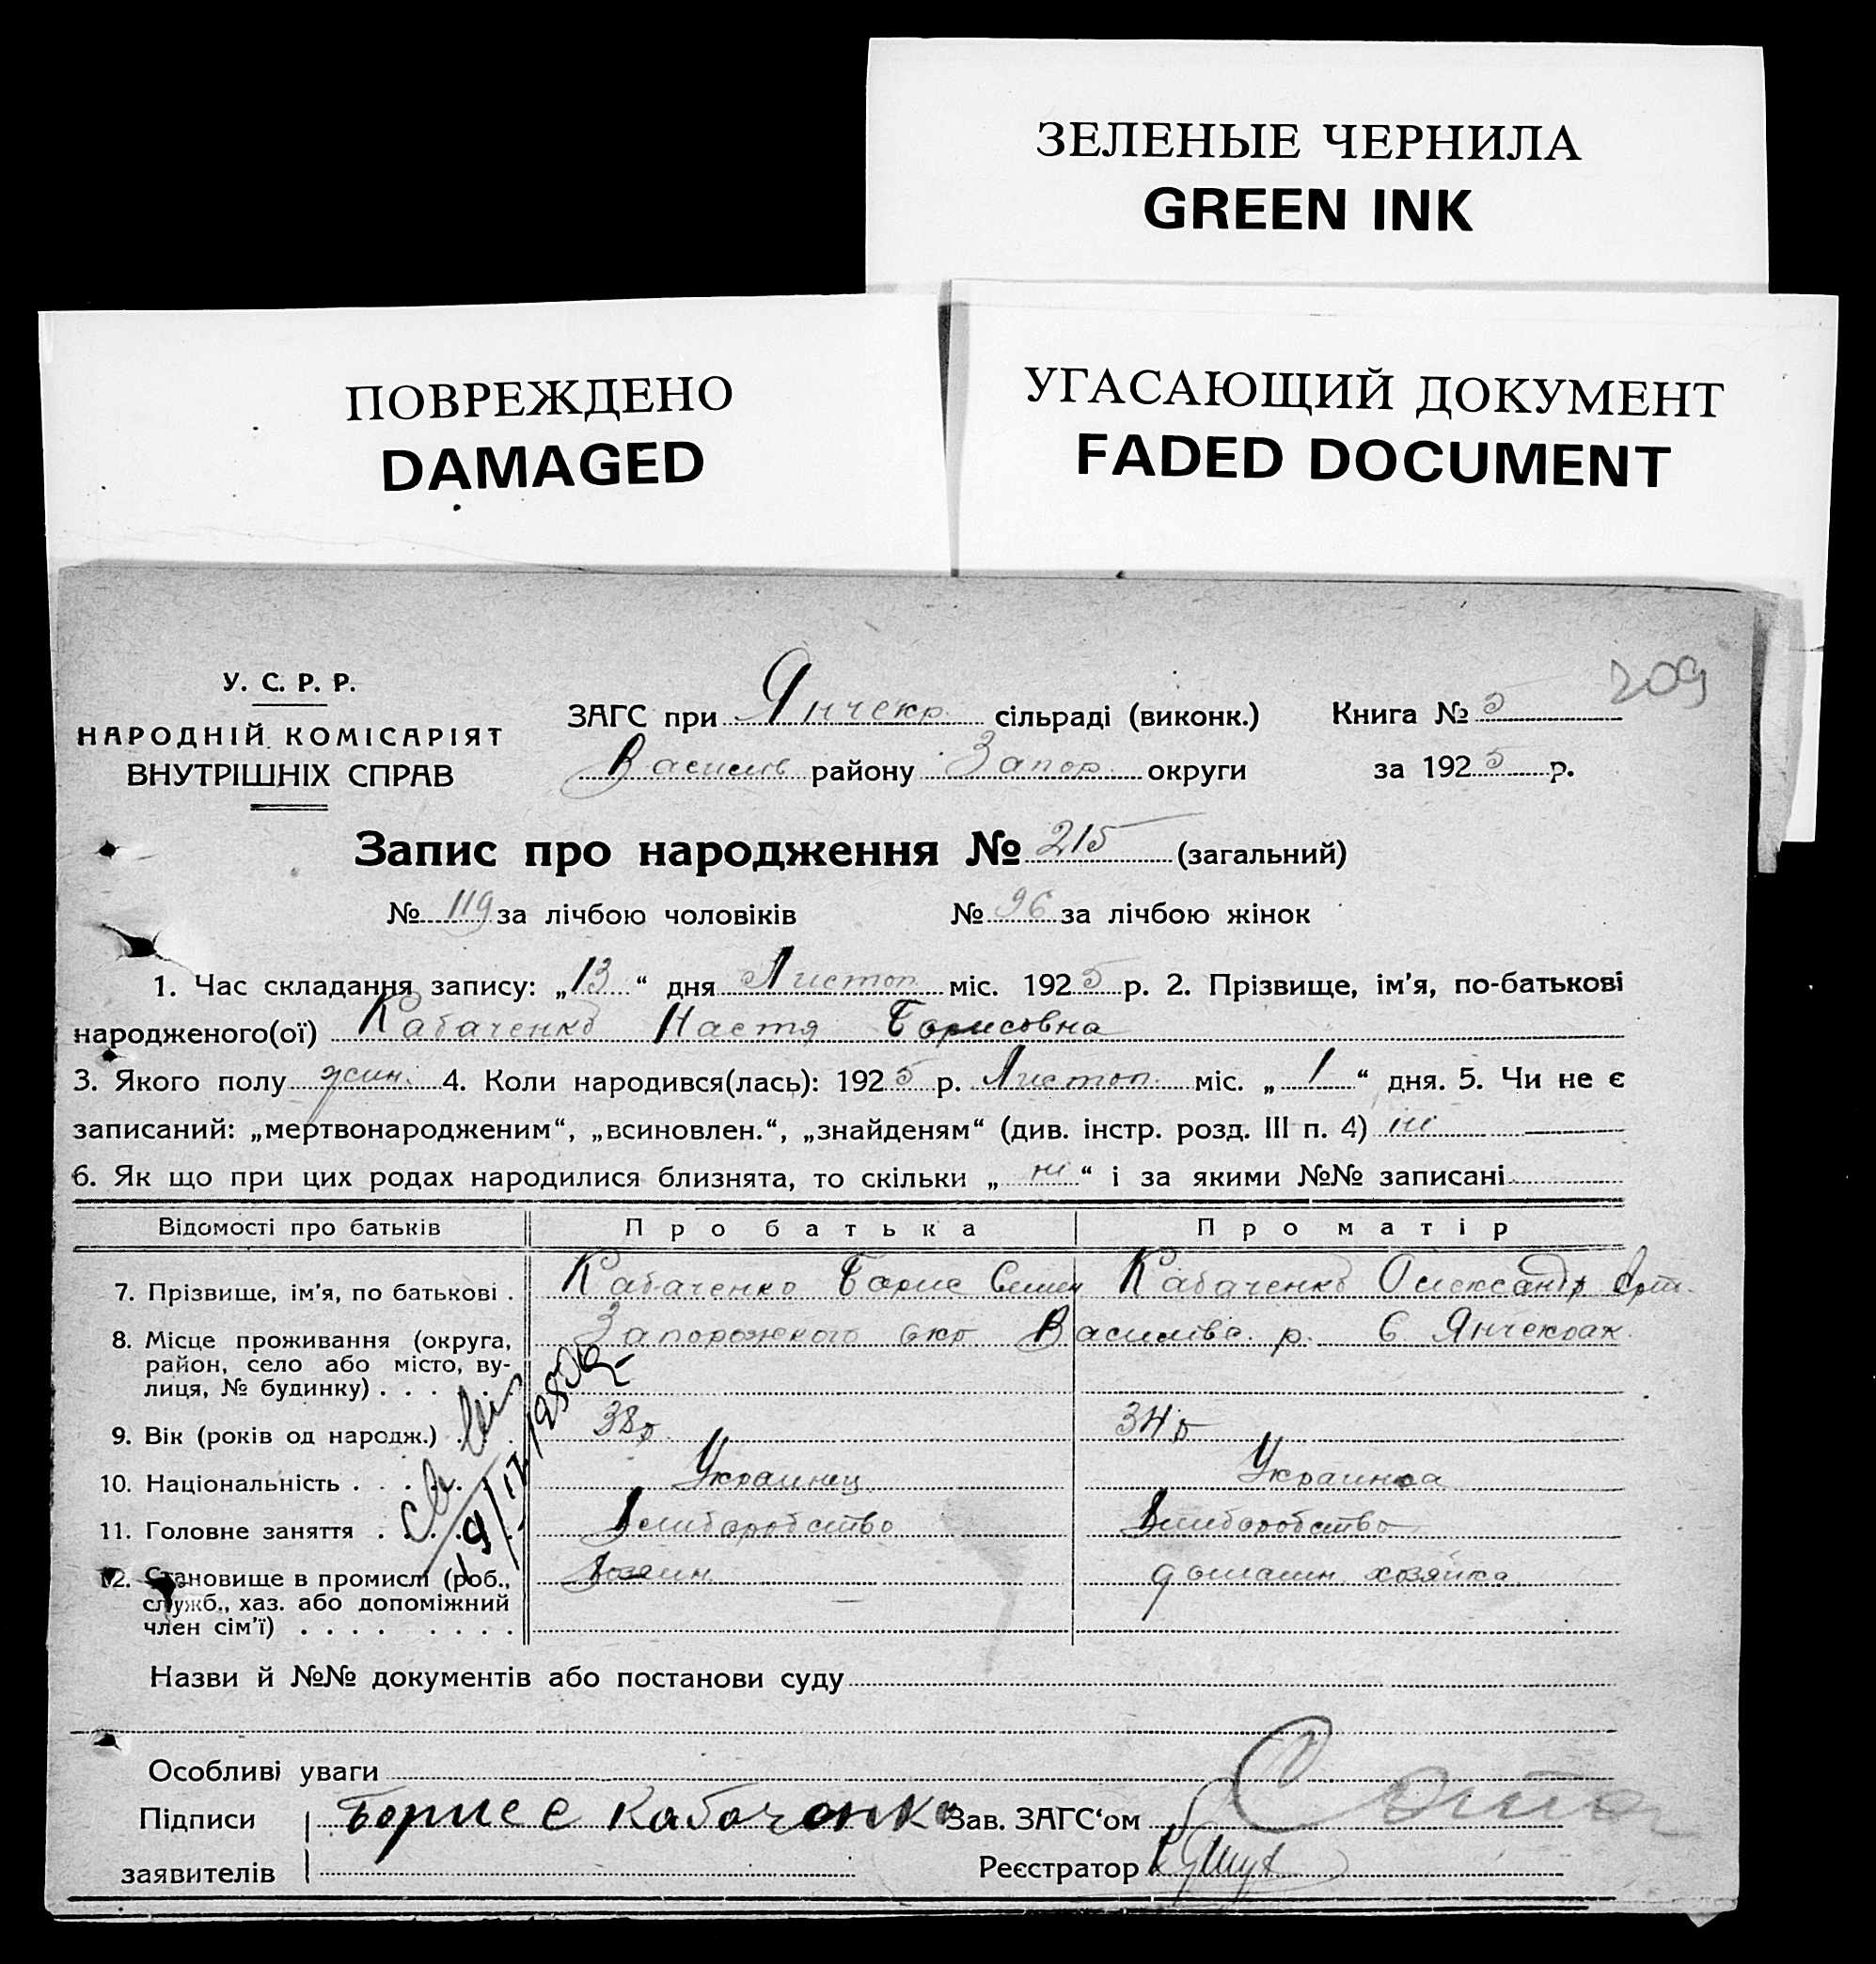 ЗЕЛЕНЫЕ ЧЕРНИЛА
GREEN INK
ПОВРЕЖДЕНО
DAMAGED
УГАСАЮЩИЙ ДОКУМЕНТ
FADED DOCUMENT
209
У. С. Р. Р.
НАРОДНІЙ КОМІСАРІЯТ
ВНУТРІШНІХ СПРАВ
ЗАГС при Янчекр. сільраді (виконк.) Книга № 5
Василів району Запор. округи за 1925 р.
Запис про народження № 215 (загальний)
№ 119 за лічбою чоловіків № 96 за лічбою жінок
1. Час складання запису: „13“ дня Листоп міс. 1925 р. 2. Прізвище, ім'я, по-батькові
народженого(ої) Кабаченко Настя Борисовна
3. Якого полу жин. 4. Коли народився(лась): 1925 р. Листоп. міс. „1“ дня. 5. Чи не є
записаний: „мертвонародженим“, „всиновлен.“, „знайденям“ (див. інстр. розд. III п. 4) ні
6. Як що при цих родах народилися близнята, то скільки „ні“ і за якими №№ записані
Відомості про батьків Про батька Про матір
7. Прізвище, ім'я, по батькові . Кабаченко Борис Семен Кабаченко Олександр
8. Місце проживання (округа, район, село або місто, вулиця, № будинку) . . . Запорожкого окр Василівс. р. с Янчекрак
9. Вік (років од народж.) . . . 38р 34р
10. Національність . . . . Украинец Украинка
11. Головне заняття . . . . Хлиборобство Хлиборобство
12. Становище в промислі (роб., служб., хаз. або допоміжний член сім'ї) . . . . . . . . Хозяин домашн. хозяйка
Назви й №№ документів або постанови суду
Особливі уваги
Підписи Борис с Кабачонко Зав. ЗАГС‘ом
заявителів Реєстратор